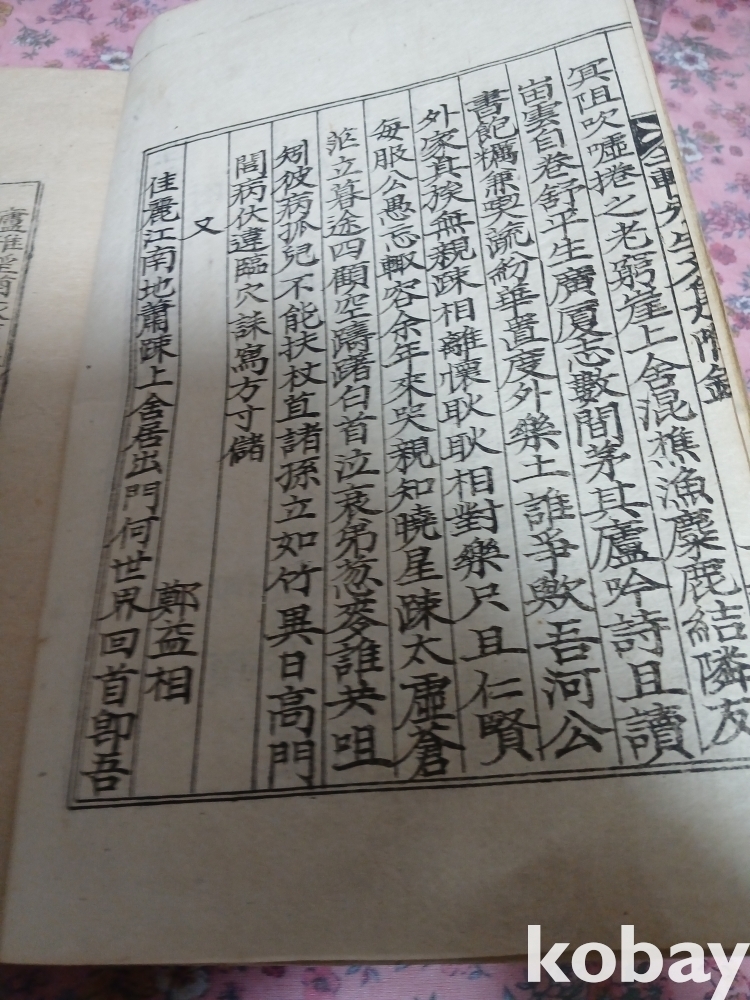 冥阻吹噓捲之老窮崖上舍混樵漁麋鹿結隣友
畝雲自卷舒平生廣厦志數間茅其廬吟詩且讀
書飽糲兼喫疏紛華置度外樂土誰爭歟吾河公
外家其族無親疎相離懷耿耿相對樂只且仁賢
每服公愚忘輙容余年來哭親知曉星踈太虛蒼
茫立暮途四顧空躊躇白首泣衰弟葱麥誰共咀
矧彼病孤兒不能扶杖苴諸孫立如竹異日高門
閭病伏違臨穴誄寫方寸儲
又
鄭益相
佳麗江南地蕭踈上舍居出門何世界回首卽吾
kobay